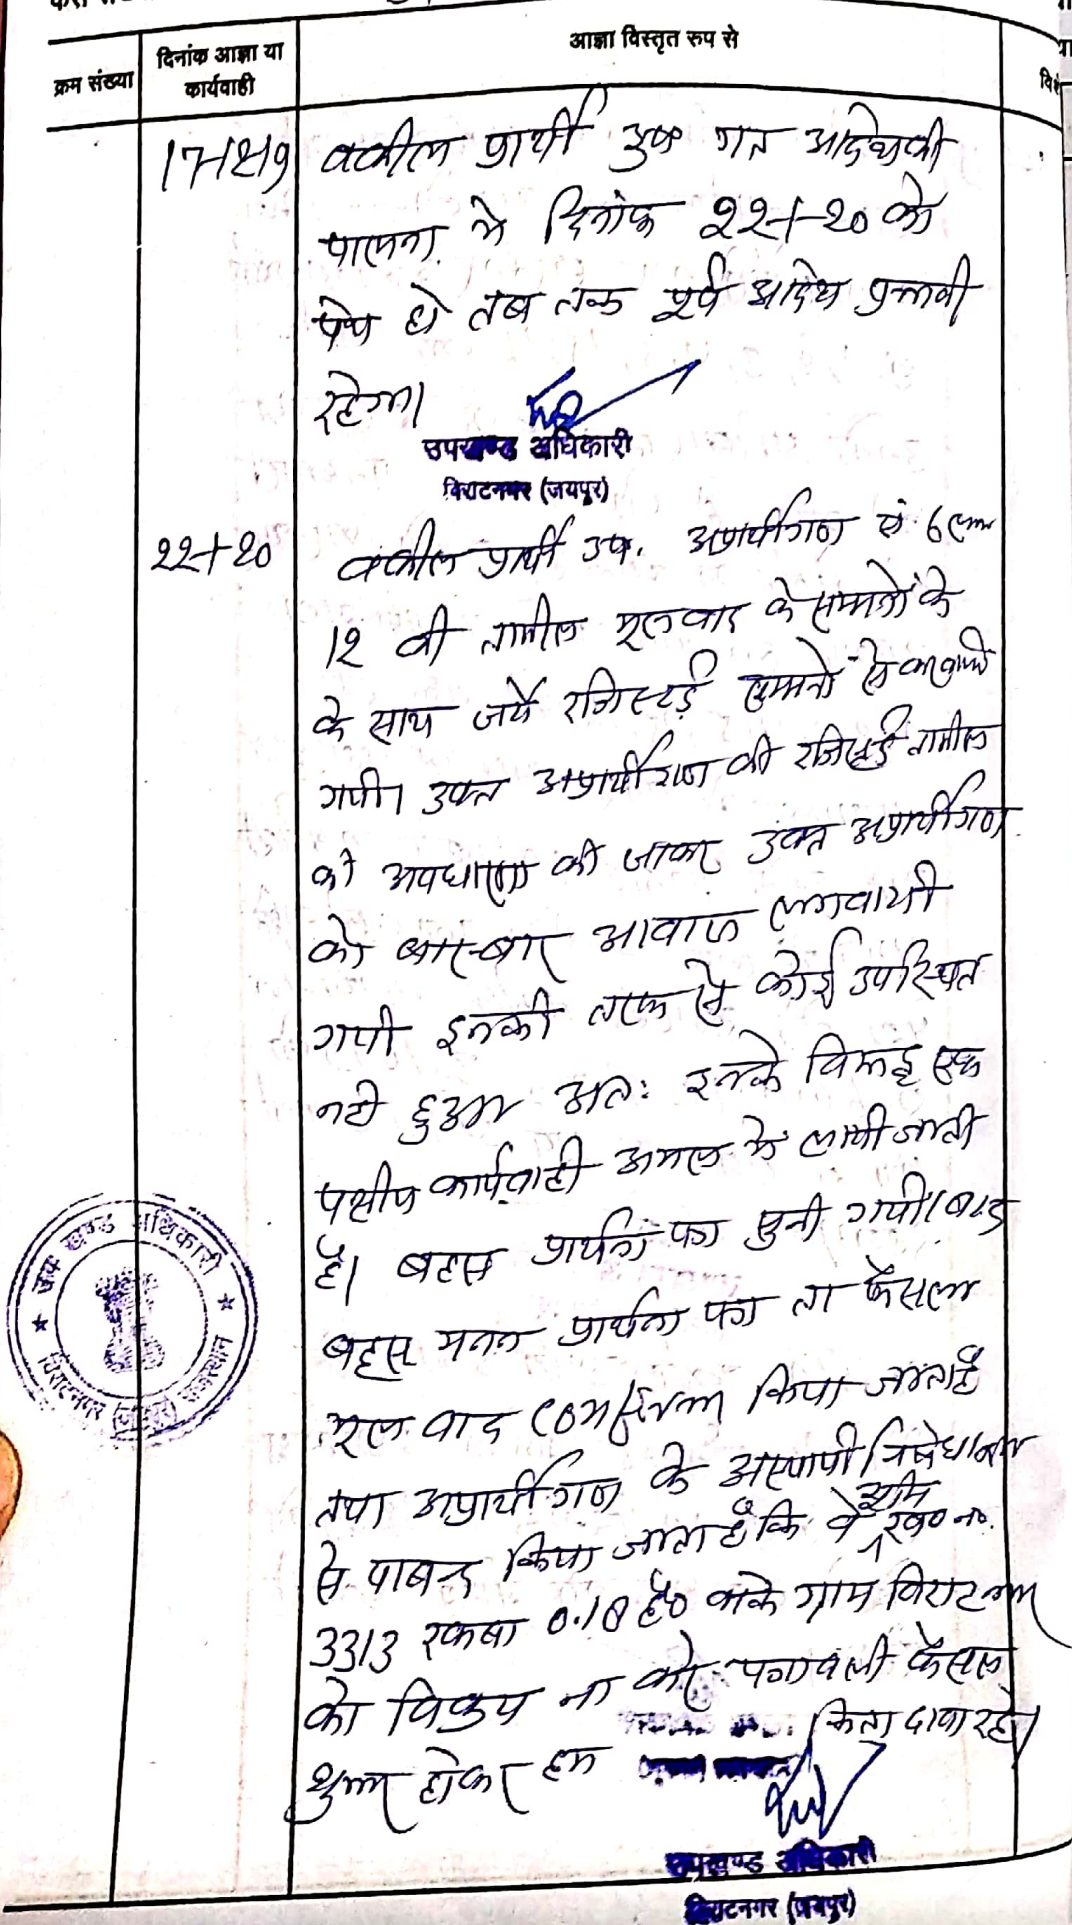 आज्ञा विस्तृत रुप से
क्रम संख्या
दिनांक आज्ञा या
कार्यवाही
वकील प्रार्थी उप गत आदेश की
पालना मे दिनांक 22-1-20 को
पेश हो तब तक पूर्व आदेश प्रभावी
रहेगा।
उपखण्ड अधिकारी
विराटनगर (जयपुर)
22-1-20 वकील प्रार्थी उप. अप्रार्थीगण सं. 6
12 की तामील मूलवाद के सम्मनों के
के साथ जर्ये रजिस्टर्ड सम्मनो से करवायी
गयी। उक्त अप्रार्थीगण की रजिस्टर्ड तामील
की अवधारणा की जाकर उक्त अप्रार्थीगण
को बार-बार आवाज लगवायी
गयी इनकी तरफ से कोई उपस्थित
नही हुआ अतः इनके विरूद्ध एक
पक्षीय कार्यवाही अमल मे लायी जाती
है। बहस प्रार्थना पत्र सुनी गयी। बाद
बहस मनन प्रार्थना पत्र ता फैसला
मूल वाद किया जाता है
तथा अप्रार्थीगण के अस्थायी निषेधाज्ञा
से पाबन्द किया जाता है कि वे भूमि ख0 न0.
3313 रकबा 0.18 है0 वाके ग्राम विराटनगर
को विक्रय ना करे पत्रावली फैसल
शुमार होकर हम किता दावा रहे।
उपखण्ड अधिकारी
विराटनगर (जयपुर)
उप खण्ड अधिकारी
विराटनगर (जयपुर) राजस्थान